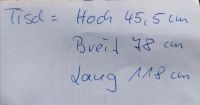 Tisch = Hoch 45,5 cm
Breit 78 cm
Lang 118 cm